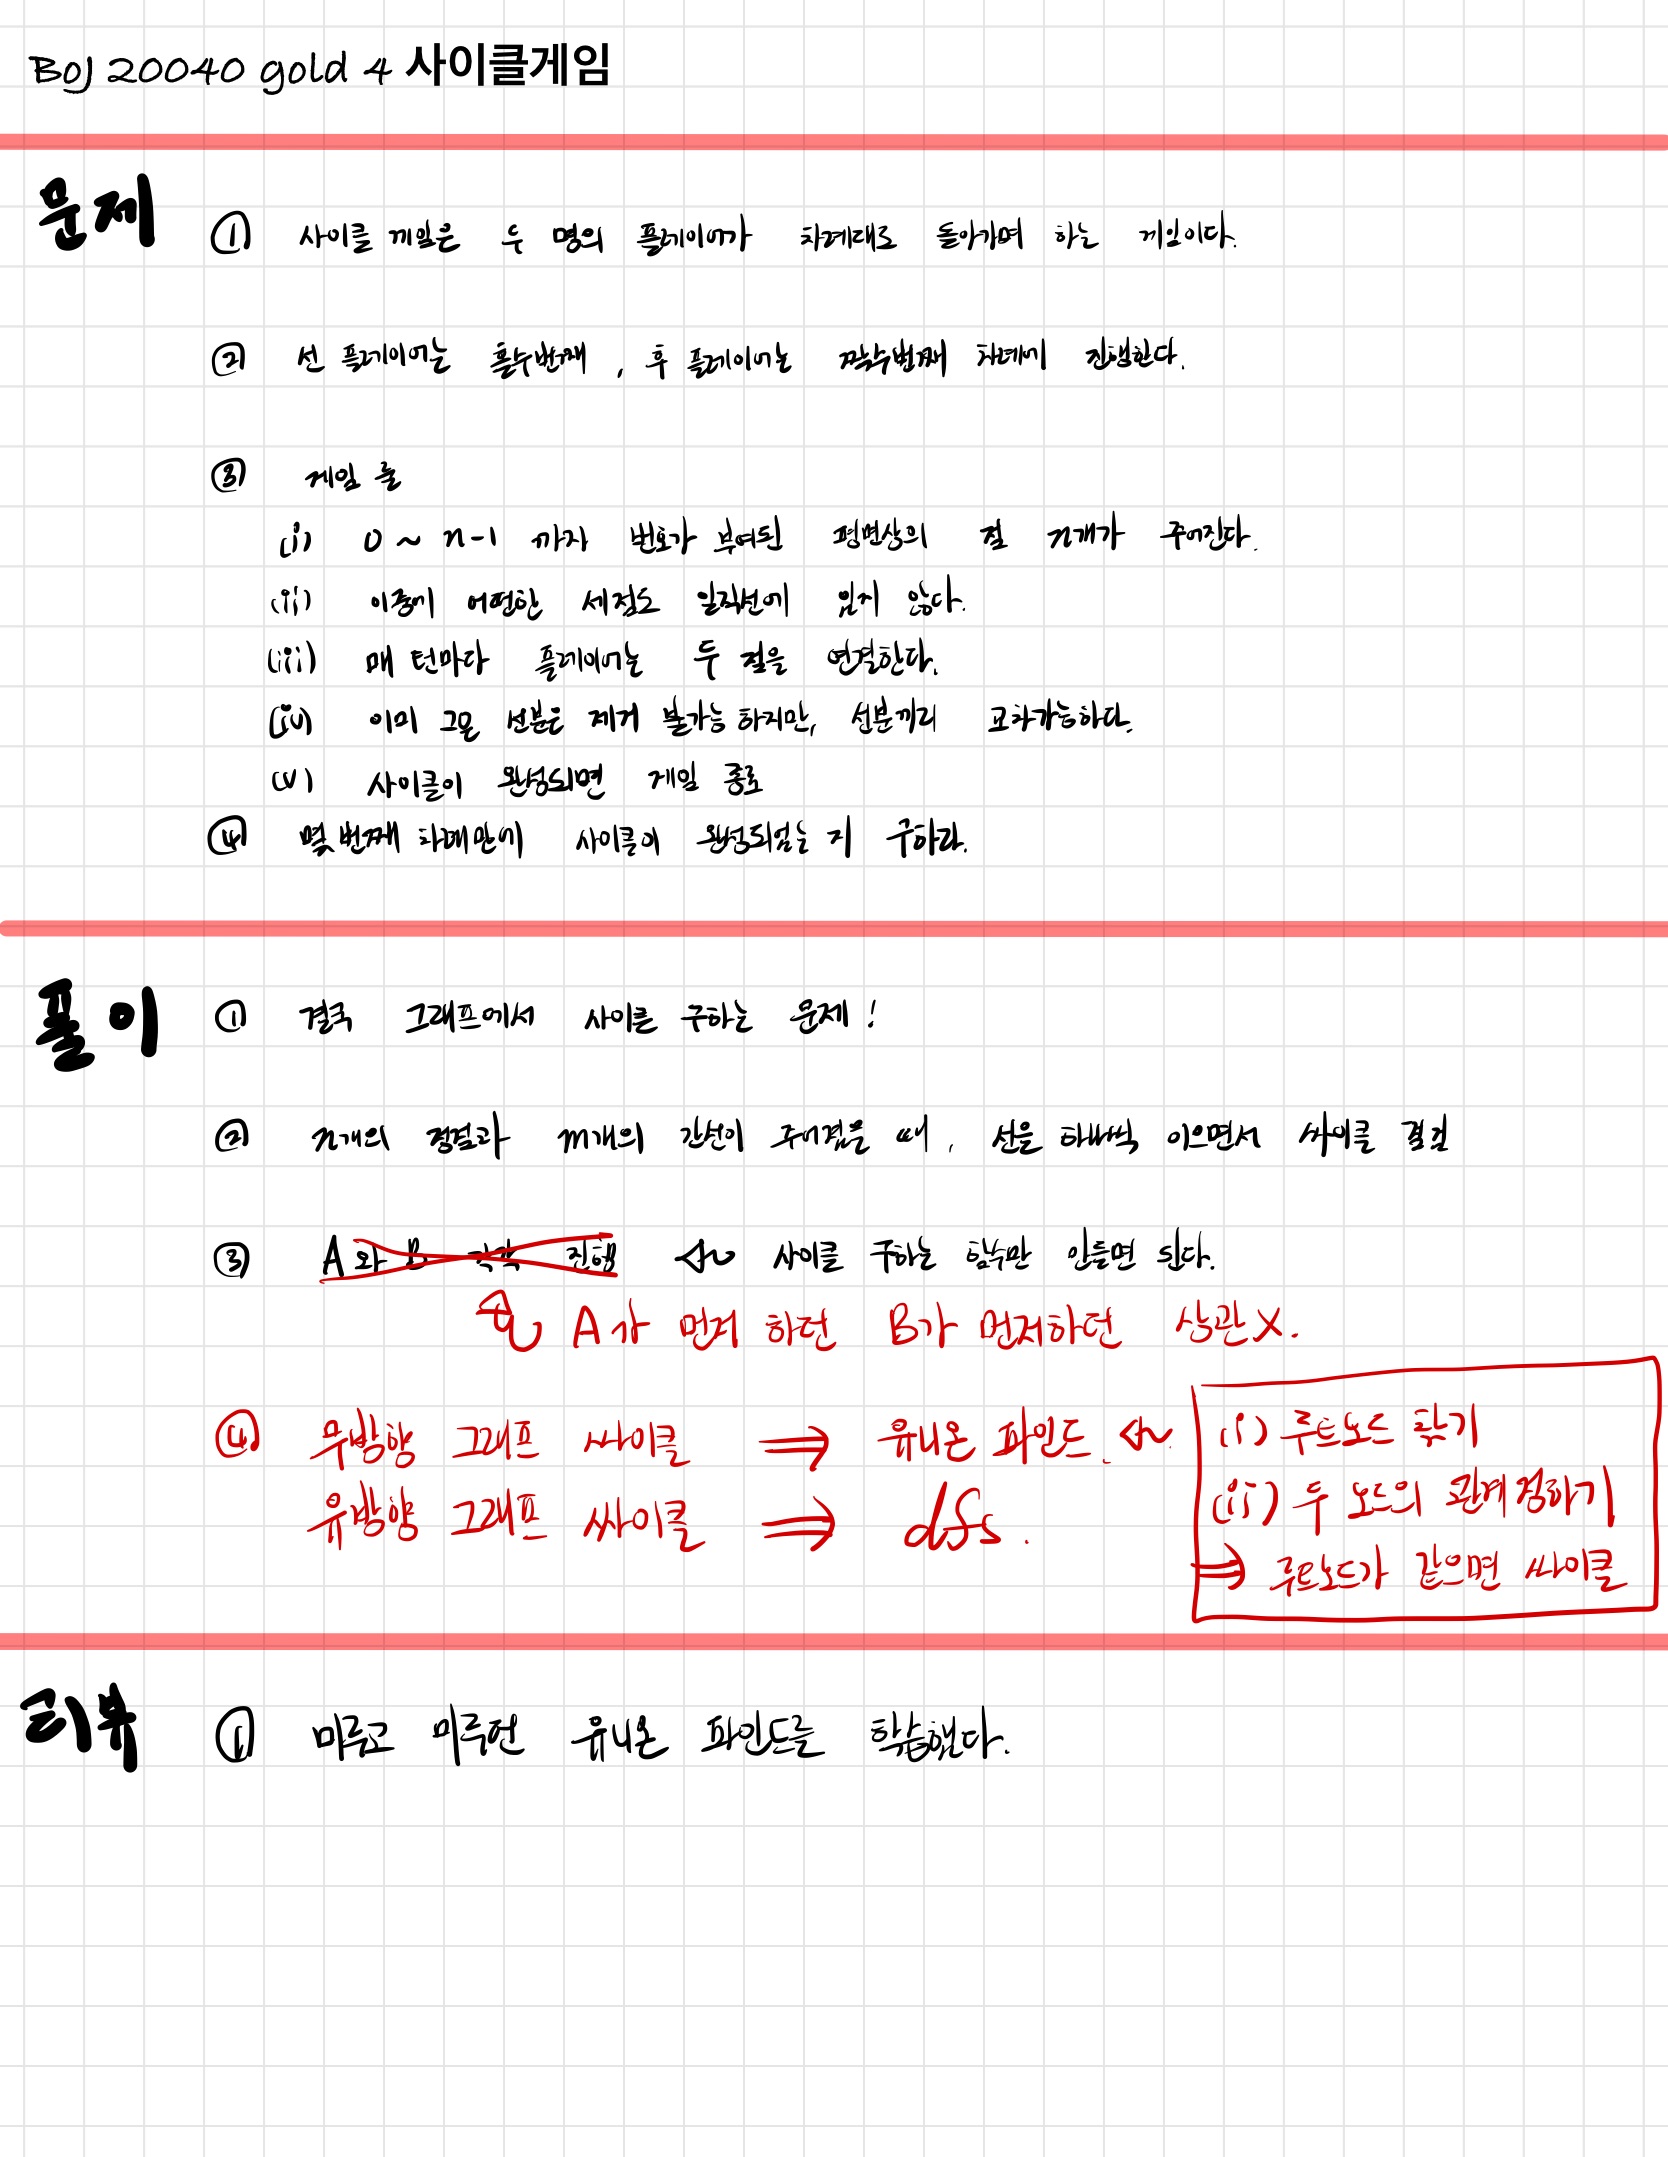 BOJ 20040 gold 4 사이클게임
문제
① 사이클 게임은 두 명의 플레이어가 차례대로 돌아가며 하는 게임이다.
② 선 플레이어는 홀수번째, 후 플레이어는 짝수번째 차례에 진행한다.
③ 게임 룰
(i) 0 ~ n-1 까지 번호가 부여된 평면상의 점 n개가 주어진다.
(ii) 이중에 어떠한 세점도 일직선에 있지 않다.
(iii) 매 턴마다 플레이어는 두 점을 연결한다.
(iv) 이미 그은 선분은 제거 불가능 하지만, 선분끼리 교차가능하다.
(v) 사이클이 완성되면 게임 종료
④ 몇 번째 차례만에 사이클이 완성되었는지 구하라.
풀이
① 결국 그래프에서 사이클 구하는 문제!
② n개의 정점과 m개의 간선이 주어졌을 때, 선을 하나씩 이으면서 싸이클 결정
③ A와 B 각각 진행 사이클 구하는 함수만 만들면 된다.
A가 먼저 하던 B가 먼저하던 상관X.
④ 무방향 그래프 싸이클 ⇒ 유니온 파인드.
유방향 그래프 싸이클 ⇒ dfs.
(i) 루트노드 찾기
(ii) 두 노드의 관계 정하기
⇒ 루트노드가 같으면 싸이클
리뷰
① 미루고 미루던 유니온 파인드를 학습했다.